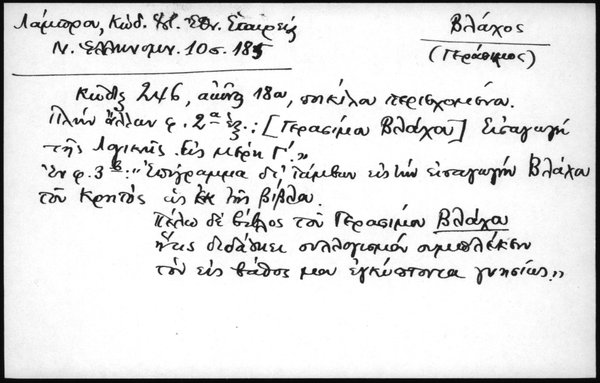 Λάμπρου, Κώδ. Ἱστ. Ἐθν. Ἑταιρείας
Ν. Ἑλληνομν. 10 σ. 185
Βλάχος
(Γεράσιμος)
Κώδιξ 246, αἰῶνος 18ου, ποικίλου περιεχομένου.
Πλὴν ἄλλων φ. 2α ἑξ.: [Γερασίμου Βλάχου] Εἰσαγωγὴ
τῆς Λογικῆς εἰς μέρη Γ΄.”
Ἐν φ. 3β: “Ἐπίγραμμα δι’ ἰάμβων εἰς τὴν εἰσαγωγὴν Βλάχου
τοῦ Κρητὸς ὡς ἐκ τῆς βίβλου.
Πέλω δὲ βίβλος τοῦ Γερασίμου Βλάχου
ἥτις διδάσκει συλλογισμὸν συμπλέκειν
τὸν εἰς βάθος μου ἐγκύπτοντα γνησίως.”